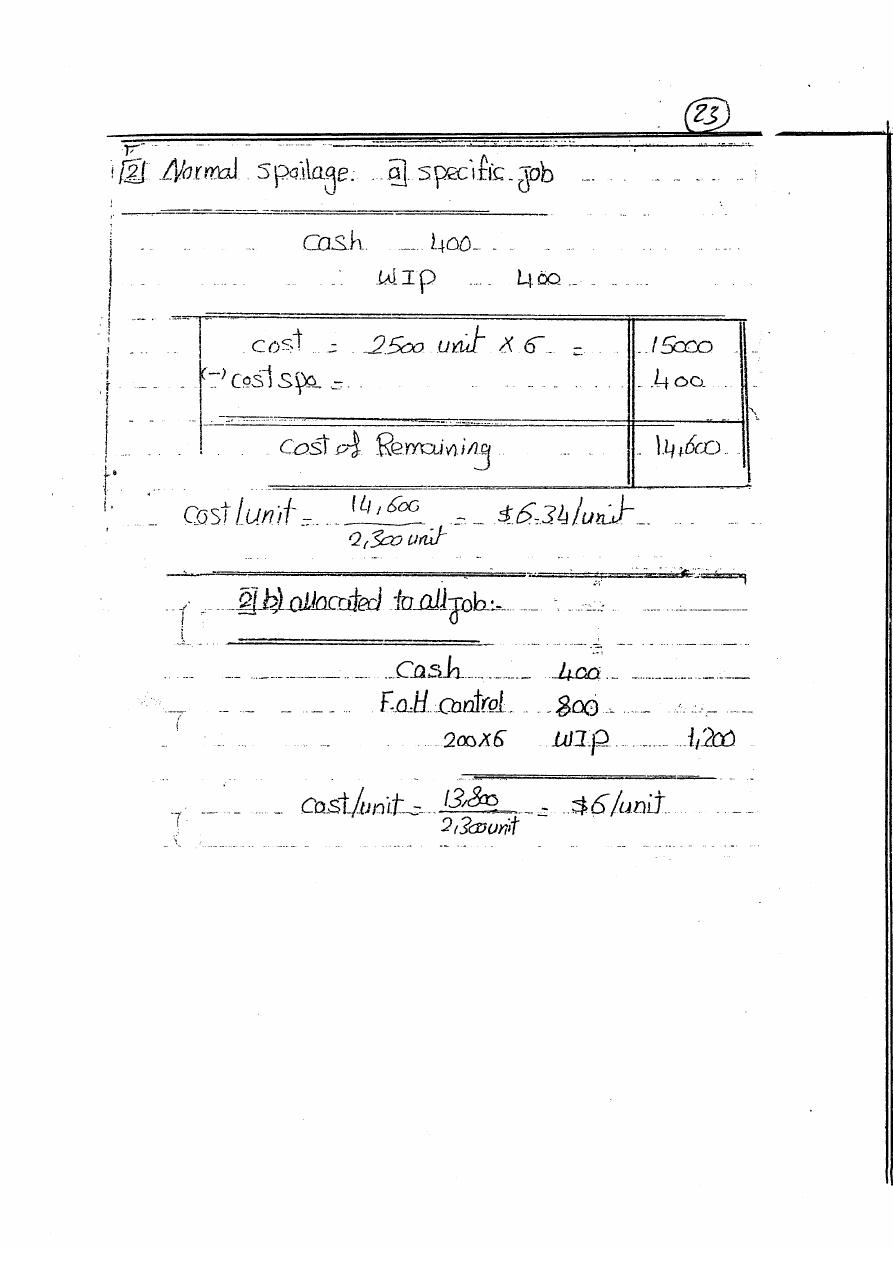 23
[2] Normal spoilage: a] specific job
Cash 400
WIP 400
cost = 2500 unit X 6 = 15000
(-) cost spo = 400
cost of Remaining 14,600
Cost/unit = 14,600 / 2,300 unit = $6.34/unit
2] b) allocated to all Job:-
Cash 400
F.o.H control 800
200X6 WIP 1,200
Cost/unit = 13,800 / 2,300 unit = $6/unit